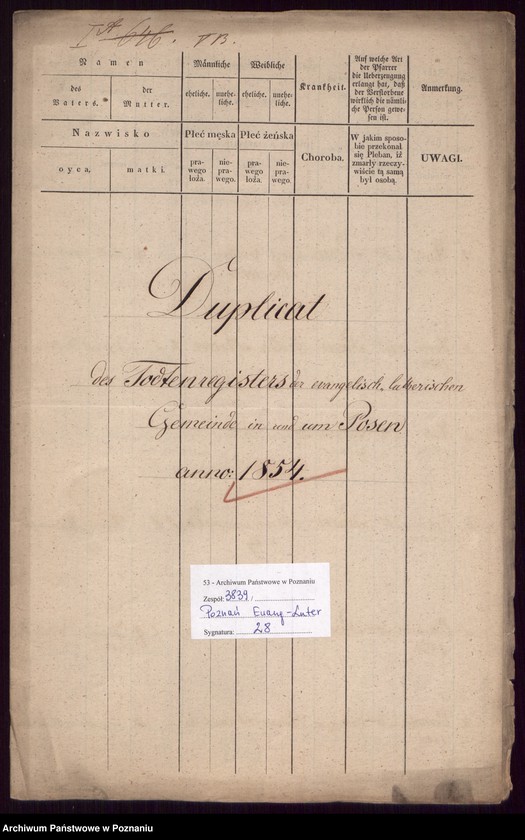 I A 646. VB.
Namen
Männliche
Weibliche
Krankheit.
Auf welche Art
der Pfarrer
die Ueberzeugung
erlangt hat, daß
der Verstorbene
wirklich die nämli-
che Person gewe-
sen ist.
Anmerkung.
des
Vaters.
der
Mutter.
eheliche.
unehe-
liche.
eheliche.
unehe-
liche.
Nazwisko
Płeć męska
Płeć żeńska
Choroba.
W jakim sposo-
bie przekonał
się Pleban, iż
zmarły rzeczy-
wiście tą samą
był osobą.
UWAGI.
oyca,
matki.
pra-
wego
łoża.
nie-
pra-
wego
pra-
wego
łoża.
nie-
pra-
wego
Duplicat
des Todtenregisters der evangelisch lutherischen
Gemeinde in und um Posen
anno: 1854.
53 - Archiwum Państwowe w Poznaniu
Zespół: 3839 /
Poznań Ewang-Luter
Sygnatura: 28
Archiwum Państwowe w Poznaniu